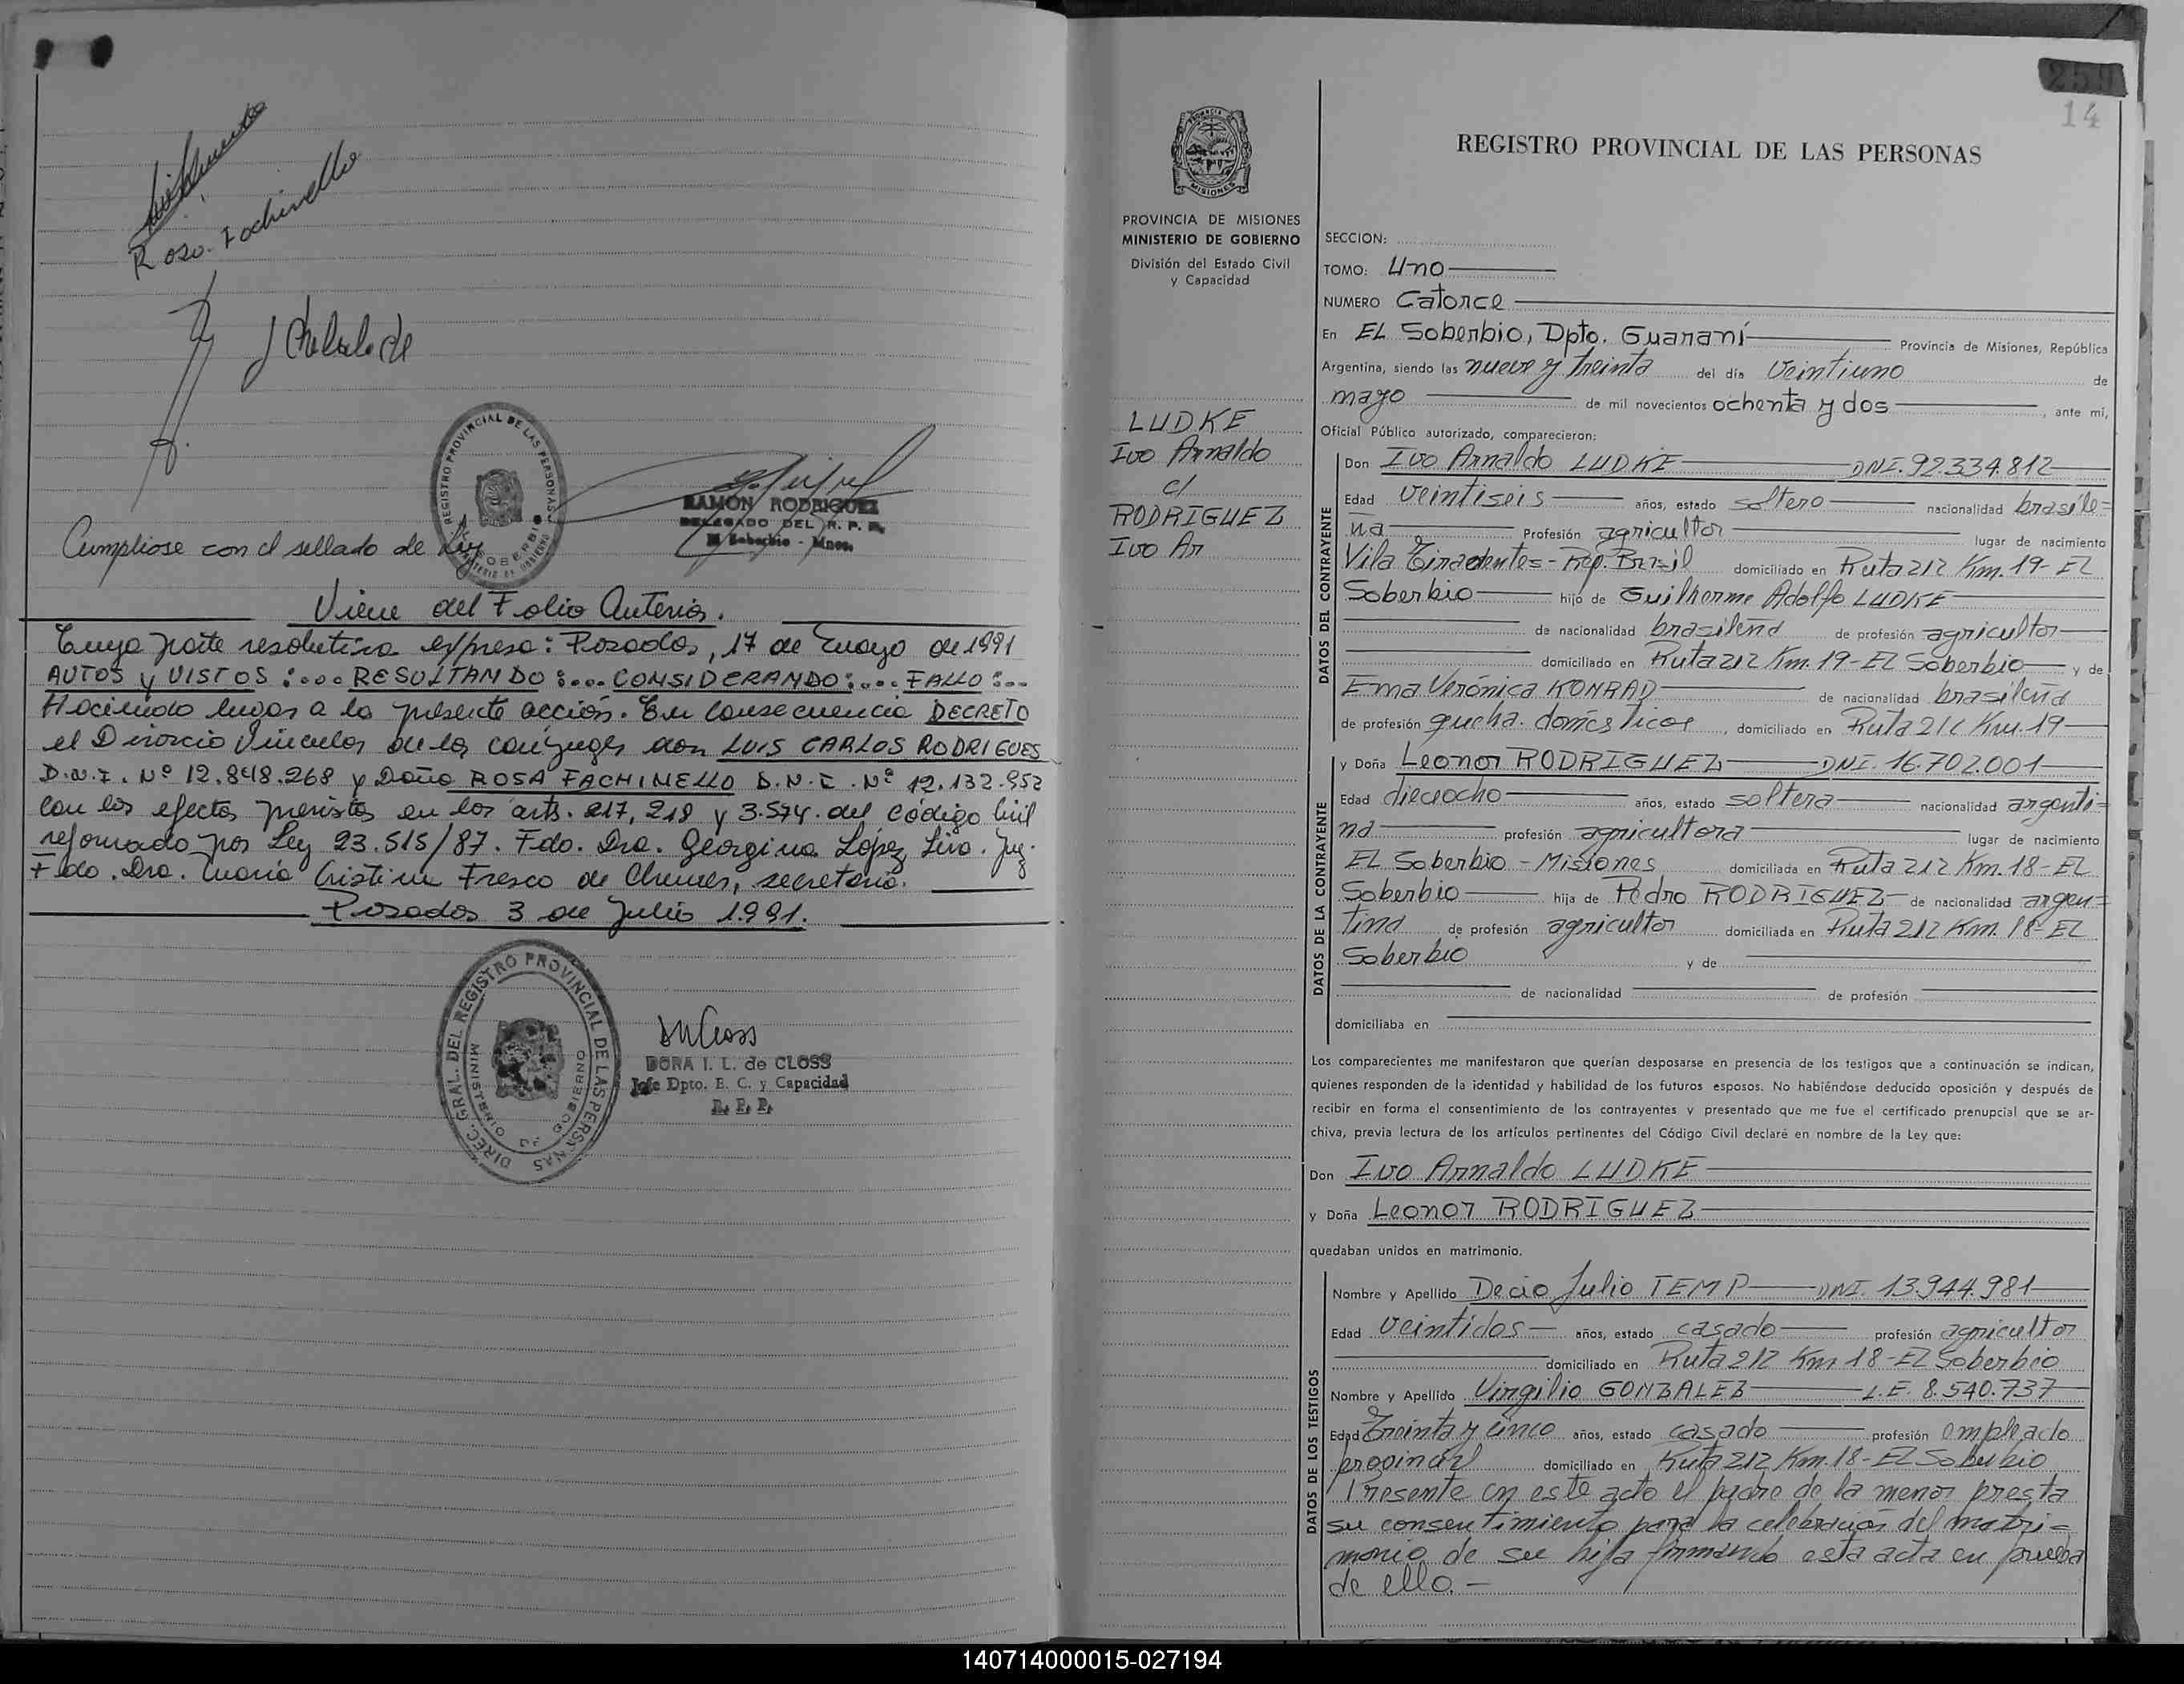 Rosa Fachinello
REGISTRO PROVINCIAL DE LAS PERSONAS
EL SOBERBIO
MINISTERIO DE GOBIERNO
RAMÓN RODRIGUEZ
DELEGADO DEL R. P. P.
El Soberbio - Mnes.
Cumpliose con el sellado de Ley
Viene del Folio Anterior.
Cuya parte resolutiva expresa: Posadas, 17 de mayo de 1991
AUTOS y VISTOS:... RESULTANDO:... CONSIDERANDO:... FALLO:...
Haciendo lugar a la presente acción. En consecuencia DECRETO
el Divorcio Vincular de los cónyuges don LUIS CARLOS RODRIGUES
D.N.I. Nº 12.848.268 y Doña ROSA FACHINELLO D.N.I. Nº 12.132.952
con los efectos previstos en los arts. 217, 218 y 3.574. del Código Civil
reformado por Ley 23.515/87. Fdo. Dra. Georgina López Liva. Juez.
Fdo. Dra. María Cristina Fresco de Chemes, secretaria.
Posadas 3 de Julio 1.991.
DIREC. GRAL. DEL REGISTRO PROVINCIAL DE LAS PERSONAS
MINISTERIO DE GOBIERNO
DORA I. L. de CLOSS
Jefe Dpto. E. C. y Capacidad
R. P. P.
14
PROVINCIA DE MISIONES
MINISTERIO DE GOBIERNO
División del Estado Civil
y Capacidad
LUDKE
Ivo Arnaldo
c/
RODRIGUEZ
Ivo Ar
REGISTRO PROVINCIAL DE LAS PERSONAS
SECCION:
TOMO: Uno
NUMERO Catorce
En EL Soberbio, Dpto. Guaraní Provincia de Misiones, República
Argentina, siendo las nueve y treinta del día veintiuno de
mayo de mil novecientos ochenta y dos, ante mí,
Oficial Público autorizado, comparecieron:
DATOS DEL CONTRAYENTE
Don Ivo Arnaldo LUDKE DNI. 92.334.812
Edad veintiseis años, estado soltero nacionalidad brasile=
na Profesión agricultor lugar de nacimiento
Vila Tiradentes - Rep. Brasil domiciliado en Ruta 212 Km. 19 - EL
Soberbio hijo de Guilherme Adolfo LUDKE
de nacionalidad brasilena de profesión agricultor
domiciliado en Ruta 212 Km. 19 - EL Soberbio y de
Ema Verónica KONRAD de nacionalidad brasileña
de profesión queha. domésticos, domiciliado en Ruta 212 Km. 19
DATOS DE LA CONTRAYENTE
y Doña Leonor RODRIGUEZ DNI. 16.702.001
Edad dieciocho años, estado soltera nacionalidad argenti=
na profesión agricultora lugar de nacimiento
EL Soberbio - Misiones domiciliada en Ruta 212 Km. 18 - EL
Soberbio hija de Pedro RODRIGUEZ de nacionalidad argen=
tina de profesión agricultor domiciliada en Ruta 212 Km. 18 - EL
Soberbio y de
de nacionalidad de profesión
domiciliaba en
Los comparecientes me manifestaron que querían desposarse en presencia de los testigos que a continuación se indican,
quienes responden de la identidad y habilidad de los futuros esposos. No habiéndose deducido oposición y después de
recibir en forma el consentimiento de los contrayentes y presentado que me fue el certificado prenupcial que se ar-
chiva, previa lectura de los artículos pertinentes del Código Civil declaré en nombre de la Ley que:
Don Ivo Arnaldo LUDKE
y Doña Leonor RODRIGUEZ
quedaban unidos en matrimonio.
DATOS DE LOS TESTIGOS
Nombre y Apellido Decio Julio TEMP DNI. 13.944.981
Edad veintidos años, estado casado profesión agricultor
domiciliado en Ruta 212 Km 18 - EL Soberbio
Nombre y Apellido Virgilio GONZALEZ L.E. 8.540.737
Edad Treinta y cinco años, estado casado profesión empleado
provincial domiciliado en Ruta 212 Km. 18 - EL Soberbio
Presente en este acto el padre de la menor presta
su consentimiento para la celebracion del matri=
monio de su hija firmando esta acta en prueba
de ello.-
140714000015-027194